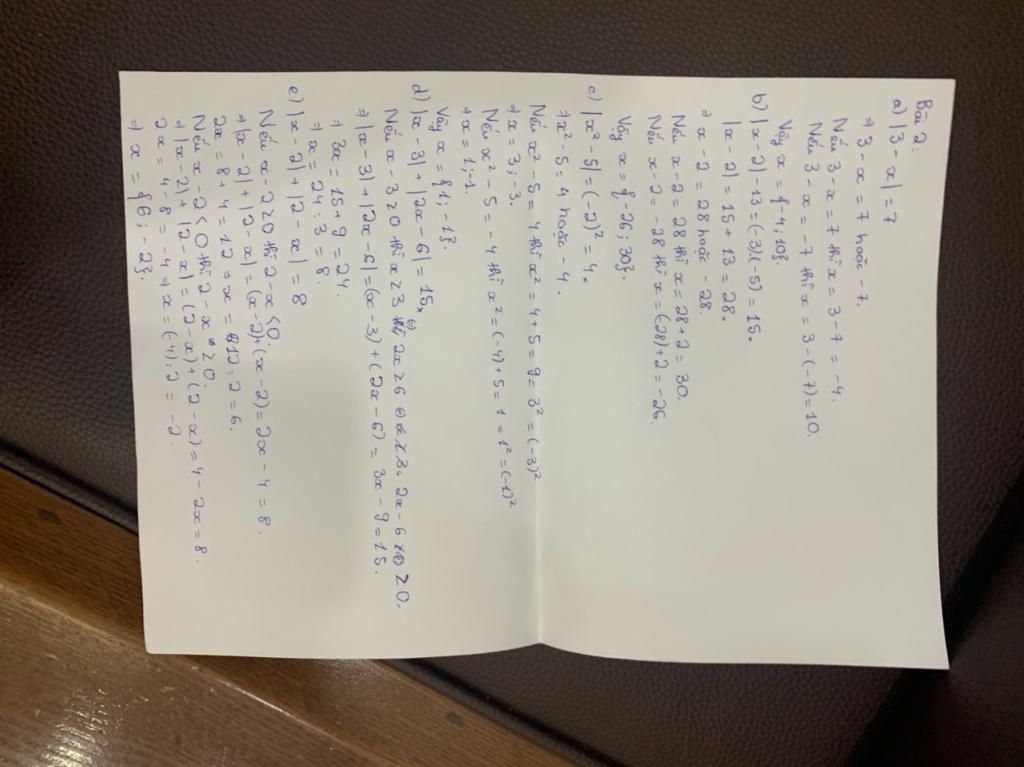 Bài 2:
a) |3 - x| = 7
⇒ 3 - x = 7 hoặc -7.
Nếu 3 - x = 7 thì x = 3 - 7 = -4.
Nếu 3 - x = -7 thì x = 3 - (-7) = 10.
Vậy x = {-4; 10}.
b) |x - 2| - 13 = (-3).(-5) = 15.
|x - 2| = 15 + 13 = 28.
⇒ x - 2 = 28 hoặc -28.
Nếu x - 2 = 28 thì x = 28 + 2 = 30.
Nếu x - 2 = -28 thì x = (-28) + 2 = -26.
Vậy x = {-26; 30}.
c) |x² - 5| = (-2)² = 4.
⇒ x² - 5 = 4 hoặc -4.
Nếu x² - 5 = 4 thì x² = 4 + 5 = 9 = 3² = (-3)²
⇒ x = 3; -3.
Nếu x² - 5 = -4 thì x² = (-4) + 5 = 1 = 1² = (-1)²
⇒ x = 1; -1.
Vậy x = {1; -1}.
d) |x - 3| + |2x - 6| = 15.
Nếu x - 3 ≥ 0 thì x ≥ 3 2x ≥ 6 2x - 6 ≥ 0.
⇒ |x - 3| + |2x - 6| = (x - 3) + (2x - 6) = 3x - 9 = 15.
⇒ 3x = 15 + 9 = 24.
⇒ x = 24 : 3 = 8.
e) |x - 2| + |2 - x| = 8
Nếu x - 2 ≥ 0 thì 2 - x < 0.
⇒ |x - 2| + |2 - x| = (x - 2) + (x - 2) = 2x - 4 = 8.
2x = 8 + 4 = 12 ⇒ x = 12 : 2 = 6.
Nếu x - 2 < 0 thì 2 - x ≥ 0.
⇒ |x - 2| + |2 - x| = (2 - x) + (2 - x) = 4 - 2x = 8.
2x = 4 - 8 = -4 ⇒ x = (-4) : 2 = -2.
⇒ x = {6; -2}.